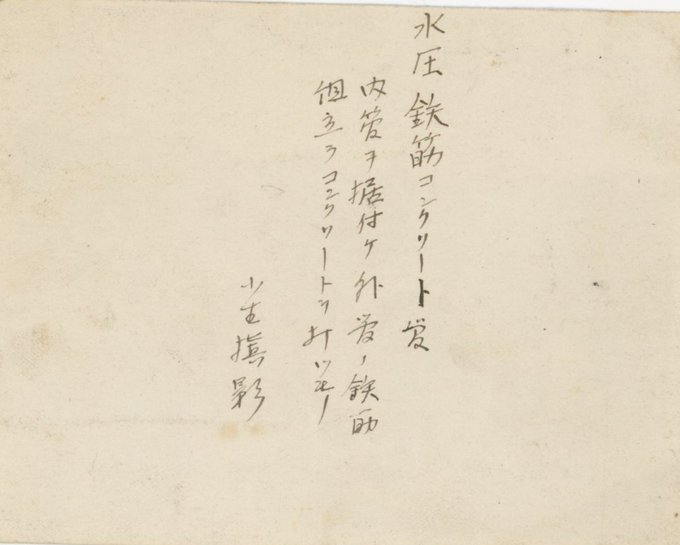 水圧鉄筋コンクリート管
内管ヲ据付ケ外管ノ鉄筋
組立ラコンクリートヲ打ツモノ
小生撮影